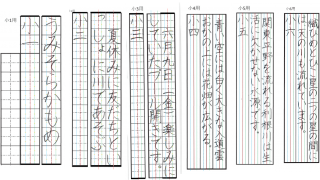 小1用
うみそらかもめ
小一
夏休みに友だちとい
っしょに川であそぶ
小二
小3用
六月九日(金)楽しみに
していたプール開きです。
小三
小4用
青い空には白く大きな入道雲
おかの上には花畑が広がる。
小四
小5用
関東平野を流れる利根川は生
活に欠かせない水源です。
小五
小6用
織ひめとひこ星の二つの星の間に
は天の川も流れています。
小六